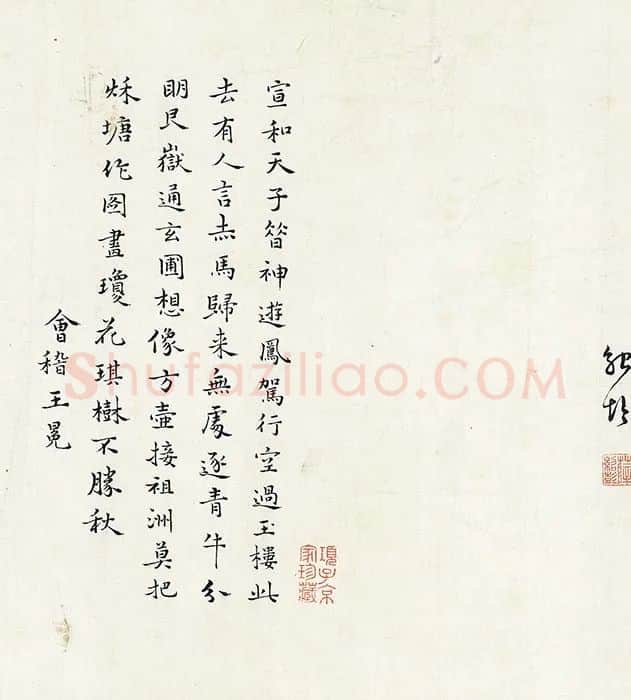 宣和天子昔神遊鳳駕行空過玉樓此
去有人言赤馬歸来無處逐青牛分
明艮嶽通玄圃想像方壺接祖洲莫把
秌塘作图畫瓊花琪樹不勝秋
會稽王冕
項子京家珍藏
Shufaziliao.COM